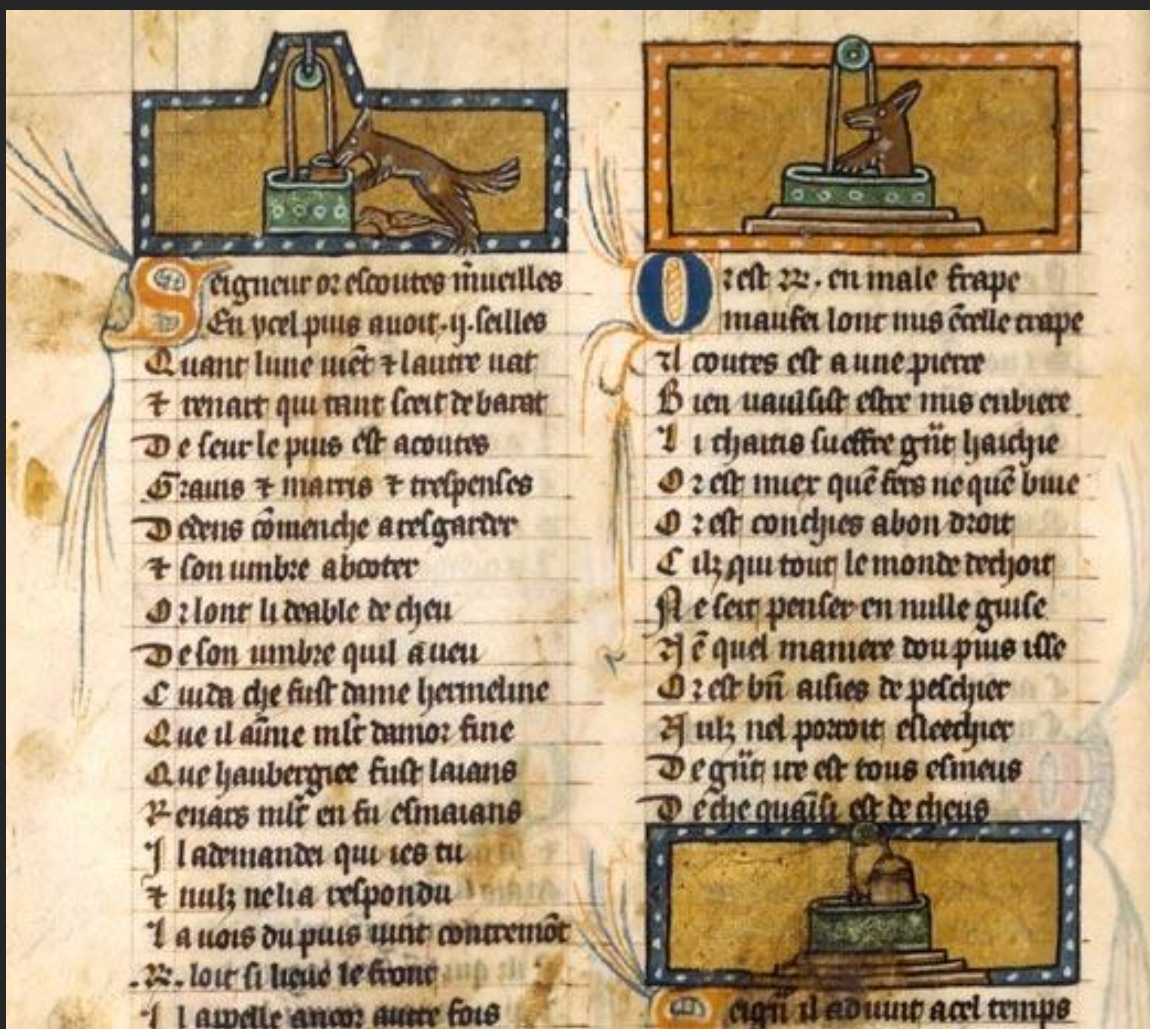 Seigneur or escoutes m̃ueilles
En ycel puis auoit .ij. seilles
Quant lune uiẽt ⁊ lautre uat
⁊ renart qui tant sceit de barat
De seur le puis est acoutes
Grams ⁊ marris ⁊ trespenses
Dedens cõmenche a resgarder
⁊ son umbre abooter
Or lont li deable decheu
De son umbre quil a ueu
Cuida che fust dame hermeline
Que il aĩme mlt damor fine
Que haubergiee fust laians
Renars mlt en fu esmaians
Il a demandei qui ies tu
⁊ nulz ne li a respondu
La uois du puis uint contremõt
.R. loit si lieue le front
Il appelle ancor autre fois
Or est .R. en male frape
maufei lont mis ẽ celle trape
Acoutes est a une pierre
Bien uausist estre mis en biere
Li chaitis sueffre gñt haichie
Or est
Or est conchies a bon droit
Cilz qui tout le monde dechoit
Ne seit penser en nulle guise
Nẽ quel maniere dou puis isse
Or est bñ aisies de peschier
Nulz nel porroit esleechier
De gñt ire est tous esmeus
De che quaĩsi est decheus
Seigñ il aduint a cel temps